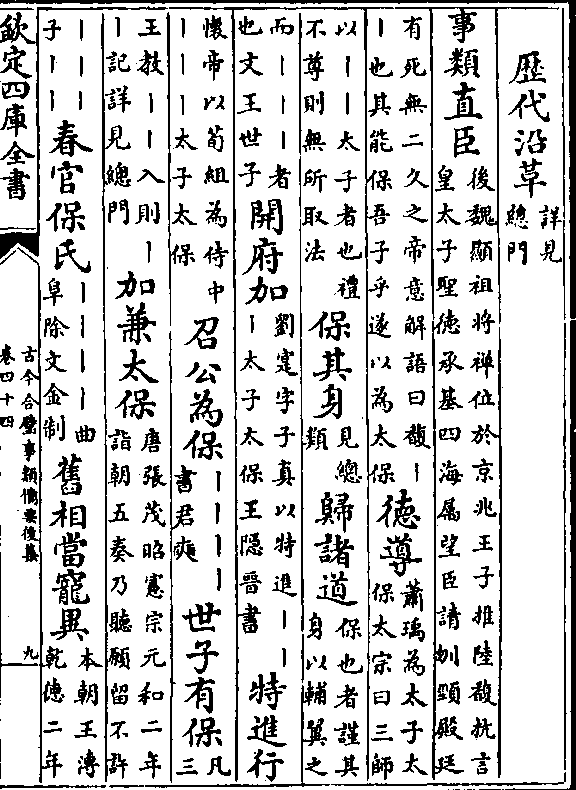 歷代沿革 詳見總門
事類直臣 後魏顯祖將禪位於京兆王子推陸馛抗言皇太子聖德承基四海屬望臣請刎頸殿廷
有死無二久之帝意解語曰馛丨丨也其能保吾子乎遂以為太保 德導 蕭瑀為太子太保太宗曰三師
以丨丨太子者也禮不尊則無所取法 保其身 見總類 歸諸道 保也者謹其身以輔翼之
而丨丨丨丨者也文王世子 開府加 劉寔字子真以特進丨丨丨太子太保王隱晉書 特進行
懷帝以荀組為侍中丨丨太子太保 召公為保 丨丨丨丨書君奭 世子有保 凡三
王教丨丨入則丨丨記詳見總門 加兼太保 唐張茂昭憲宗元和二年詣朝五奏乃聽願留不許
丨丨丨丨子丨丨 春官保氏 丨丨丨丨曲阜除文金制 舊相當寵異 本朝王溥乾德二年
欽定四庫全書
古今合璧事類備要後集
卷四十四
九